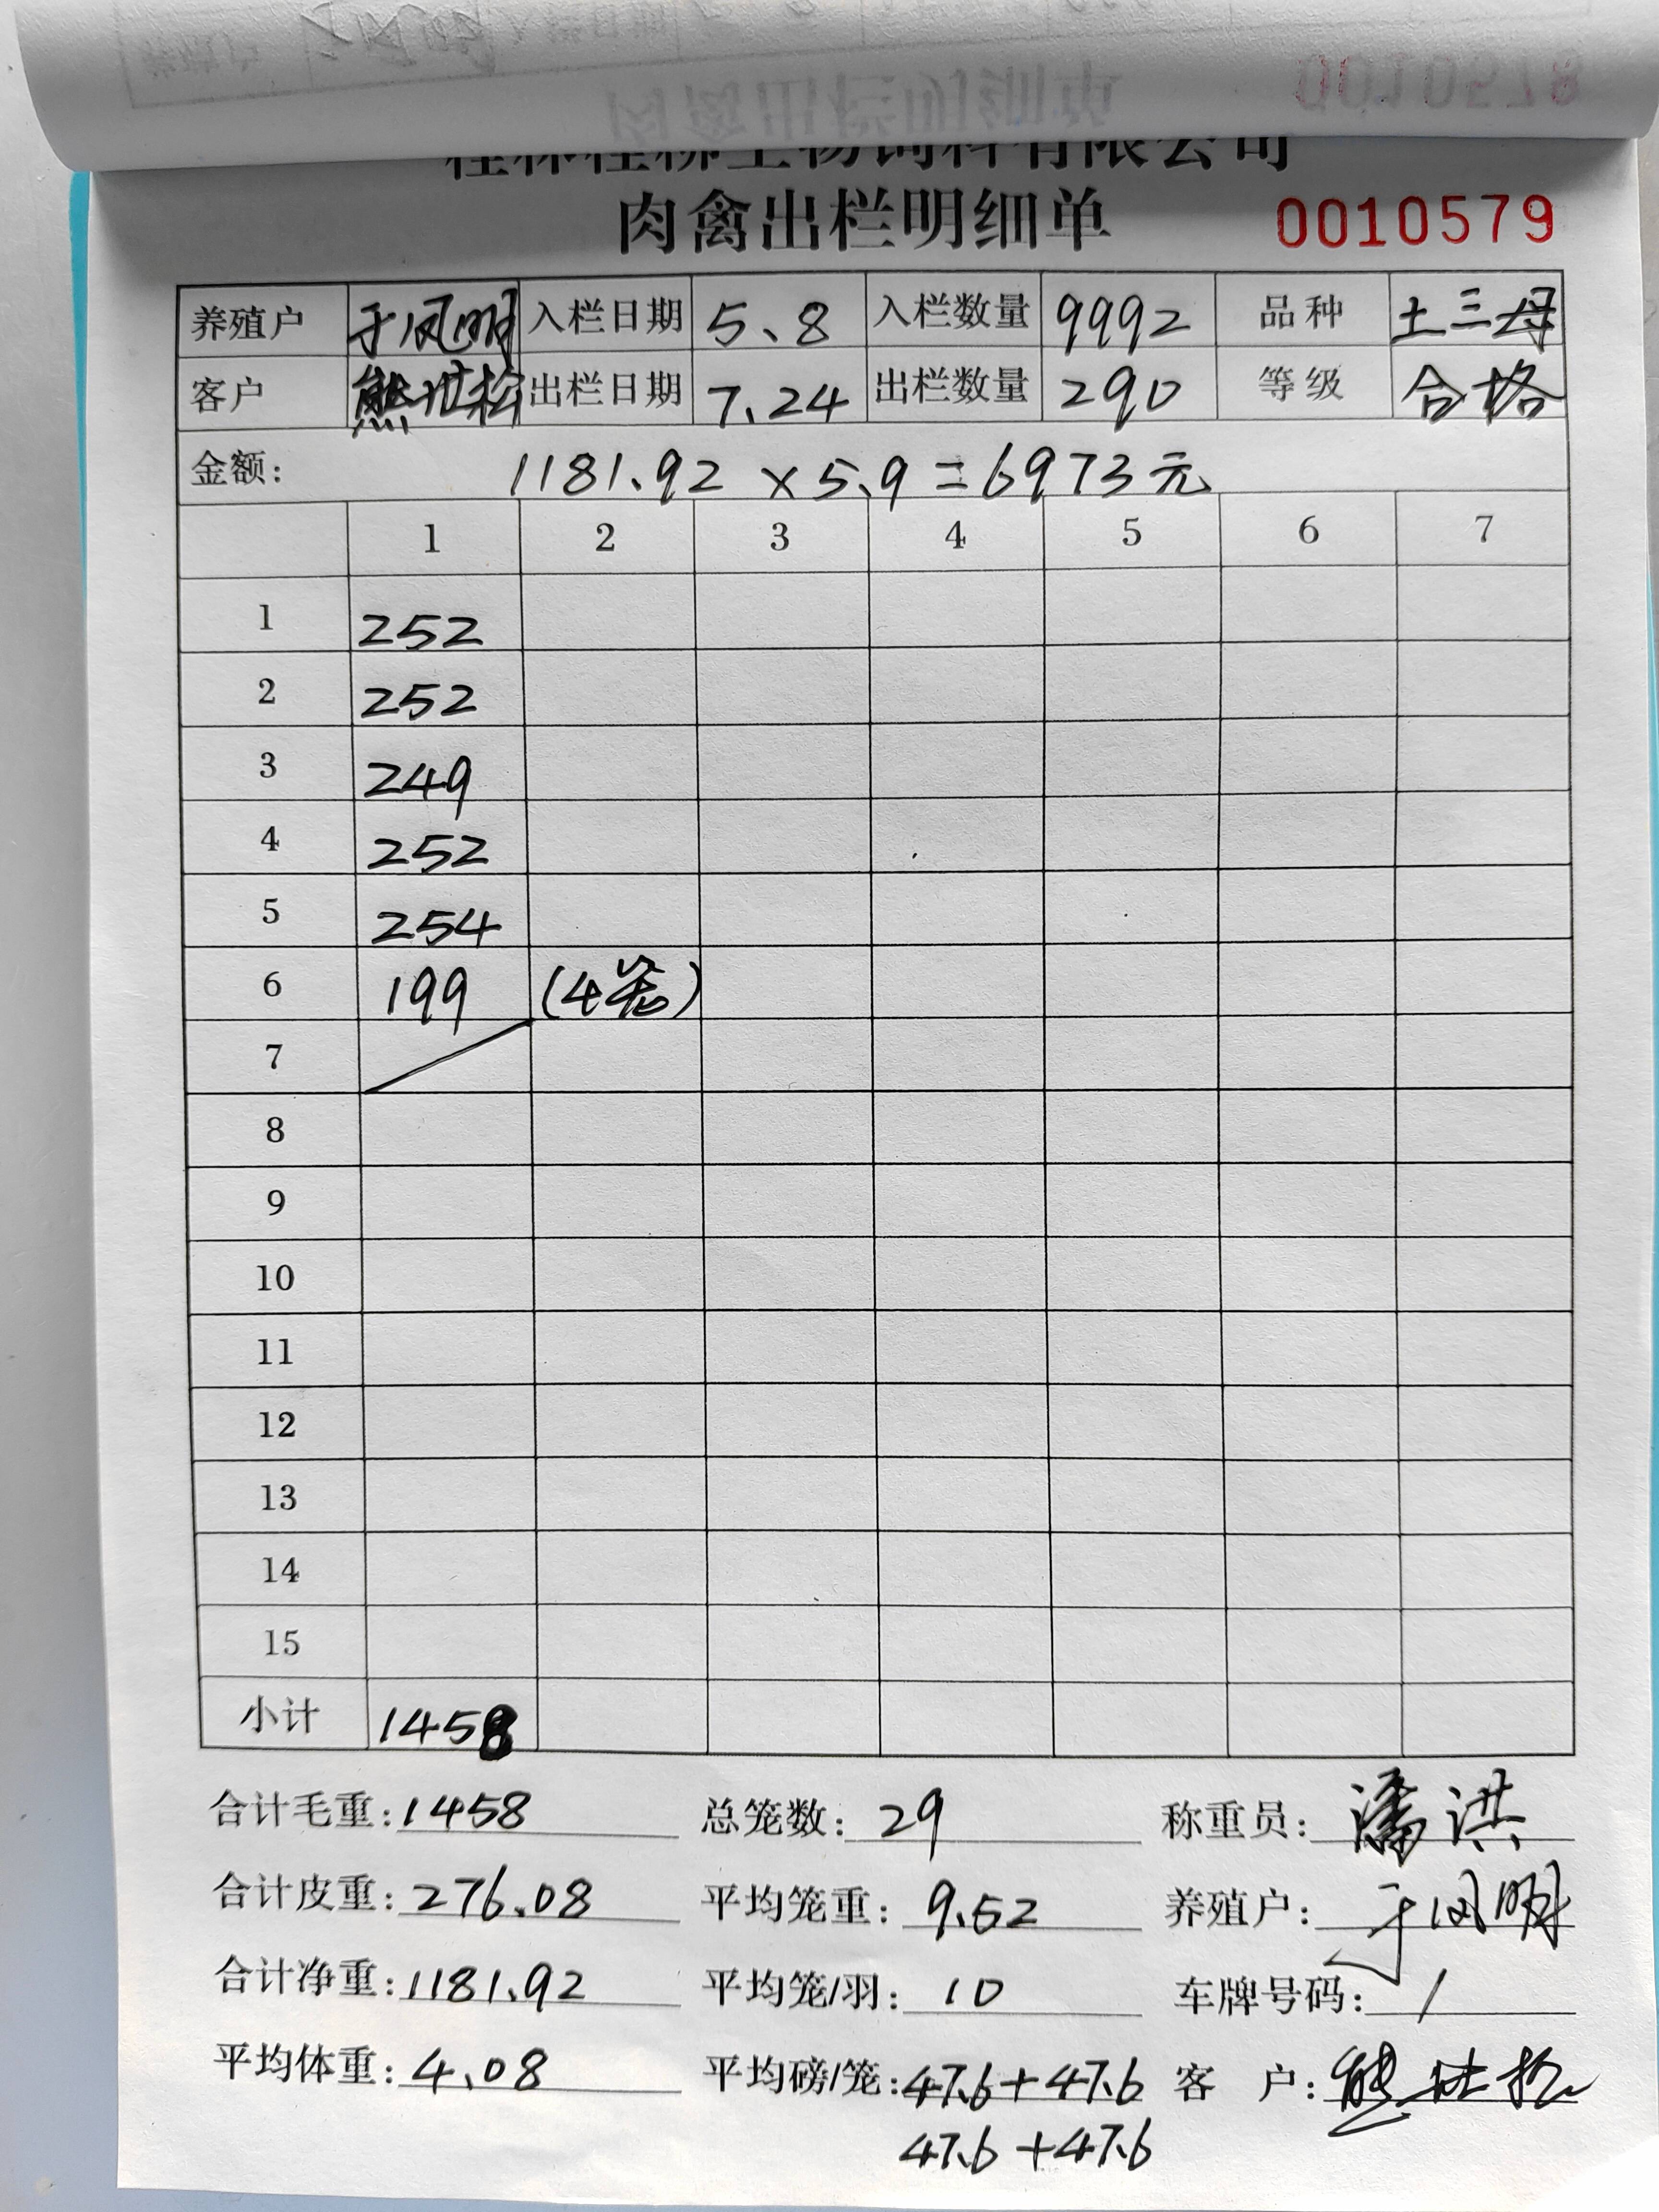 桂林桂柳生物饲料有限公司
肉禽出栏明细单 0010579
养殖户 于凤明 入栏日期 5.8 入栏数量 9992 品种 土三母
客户 熊世松 出栏日期 7.24 出栏数量 290 等级 合格
金额: 1181.92 × 5.9 = 6973元
1 2 3 4 5 6 7
1 252
2 252
3 249
4 252
5 254
6 199 (4笼)
7
8
9
10
11
12
13
14
15
小计 1458
合计毛重: 1458 总笼数: 29 称重员: 潘洪
合计皮重: 276.08 平均笼重: 9.52 养殖户: 于凤明
合计净重: 1181.92 平均笼/羽: 10 车牌号码: /
平均体重: 4.08 平均磅/笼: 47.6+47.6 客 户: 熊世松
47.6+47.6